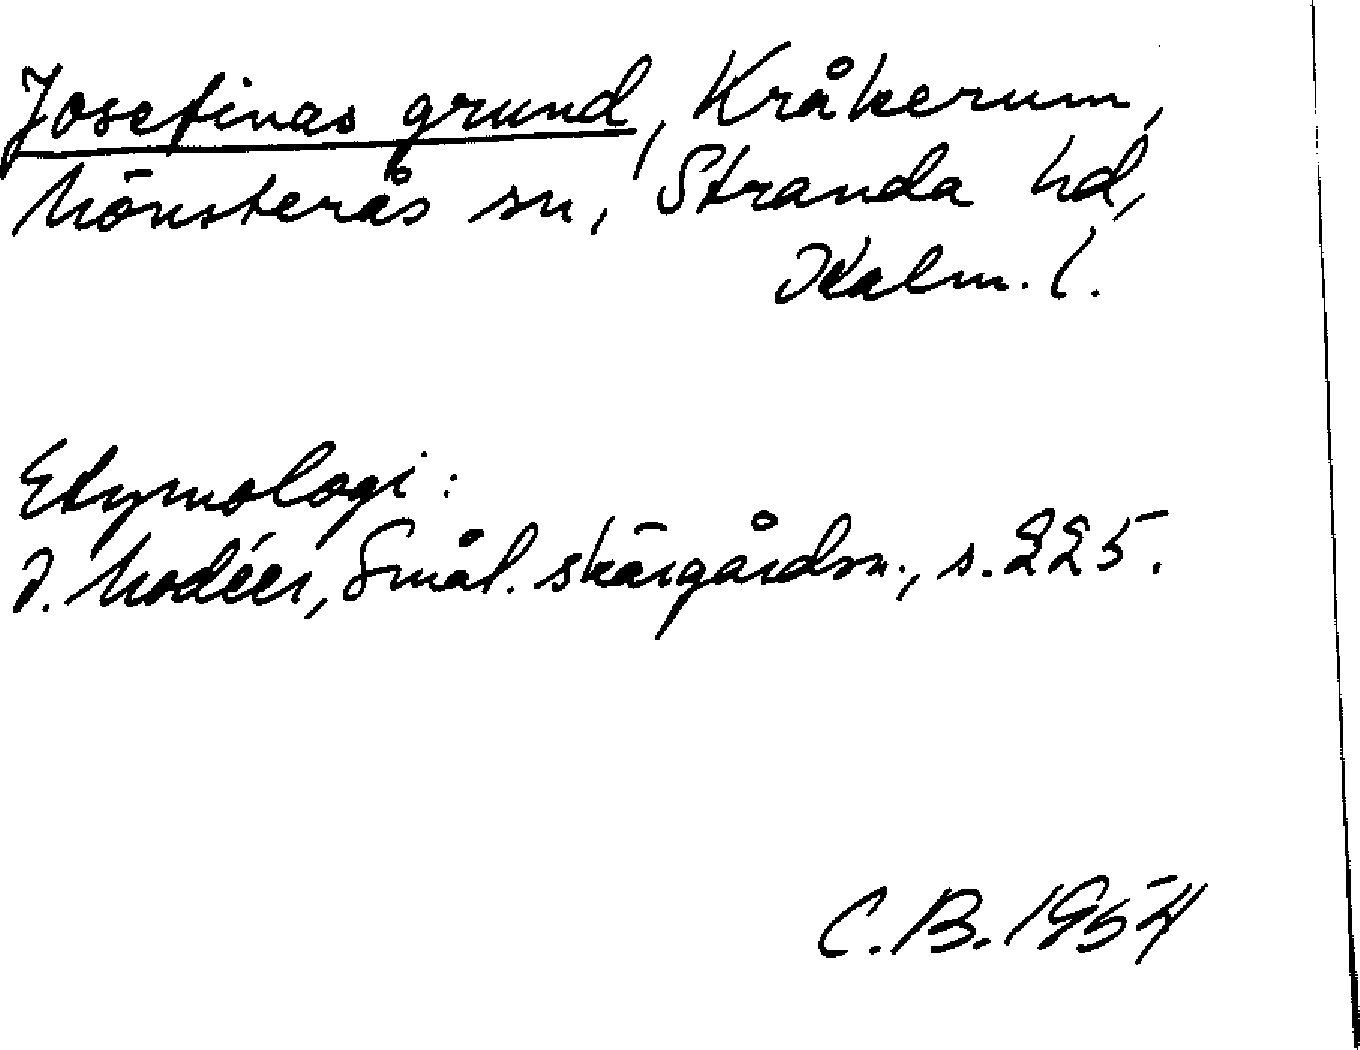 Josefinas grund, Kråkerum,
Mönsterås sn, Stranda hd,
Kalm. l.
Etymologi:
I. Modéer, Smål. skärgårdsn., s. 225.
C. B. 1954